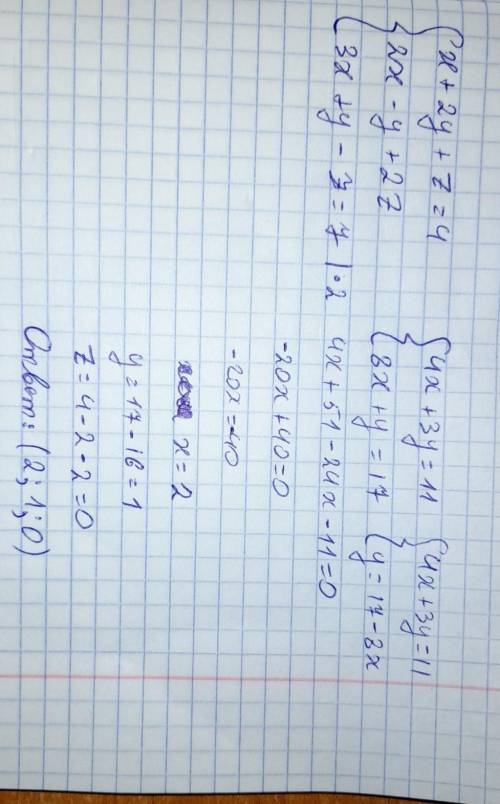 x + 2y + z = 4
2x - y + 2z
3x + y - z = 7 | · 2
4x + 3y = 11
8x + y = 17
4x + 3y = 11
y = 17 - 8x
4x + 51 - 24x - 11 = 0
-20x + 40 = 0
-20x = -40
x = 2
y = 17 - 16 = 1
z = 4 - 2 - 2 = 0
Ответ: (2; 1; 0)